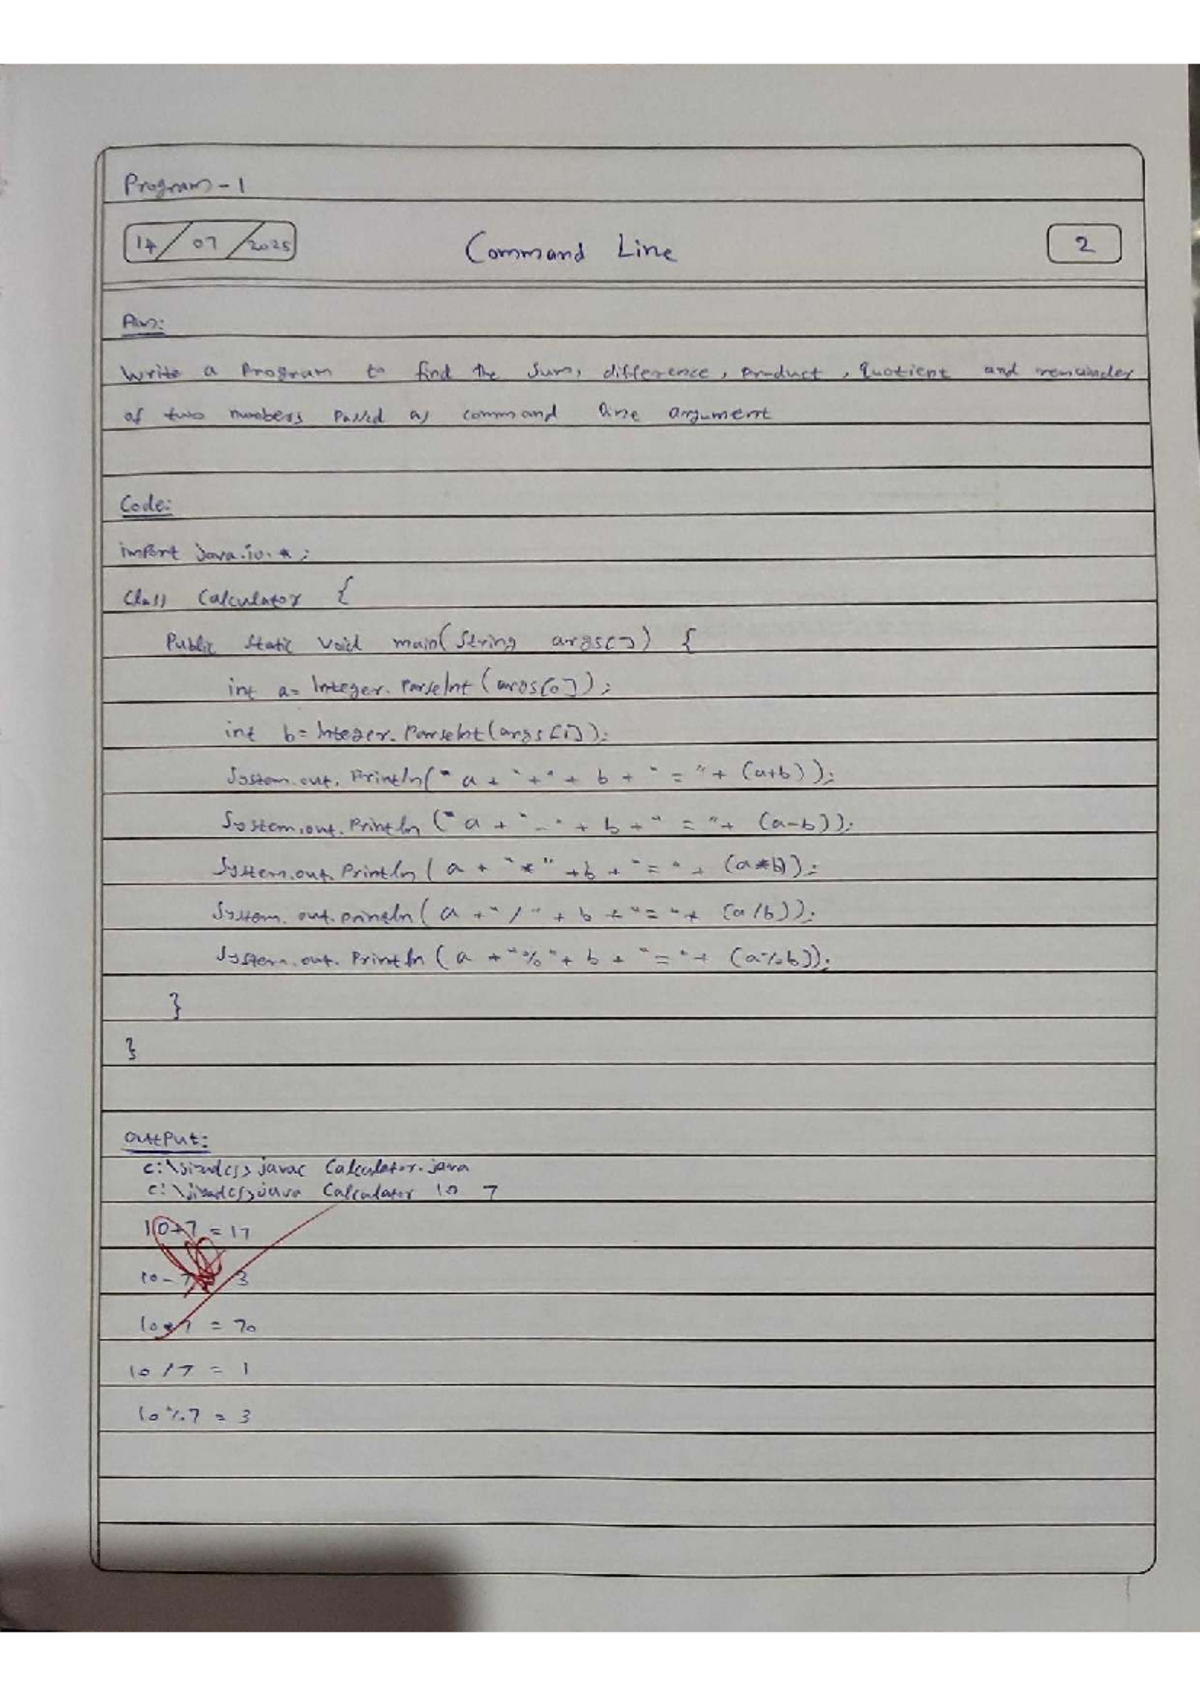 Program - 1
14/07/2025
Command Line
2
Aim:
Write a Program to find the Sum, difference, product, Quotient and remainder
of two numbers passed as command line argument
Code:
import java.io.*;
Class Calculator {
Public Static Void main(String args[]) {
int a= Integer.ParseInt(args[0]);
int b= Integer.ParseInt(args[1]);
System.out.Println(" a + "+" + b + " = "+ (a+b));
System.out.Println(" a + "-" + b + " = "+ (a-b));
System.out.Println( a + "*" +b + "=" + (a*b));
System.out.println( a +"/" + b +"="+ (a/b));
System.out.Println( a +"%"+ b + "="+ (a%b));
}
}
Output:
javac Calculator.java
java Calculator 10 7
10+7 = 17
10-7 3
10*7 = 70
10/7 = 1
10%7 = 3